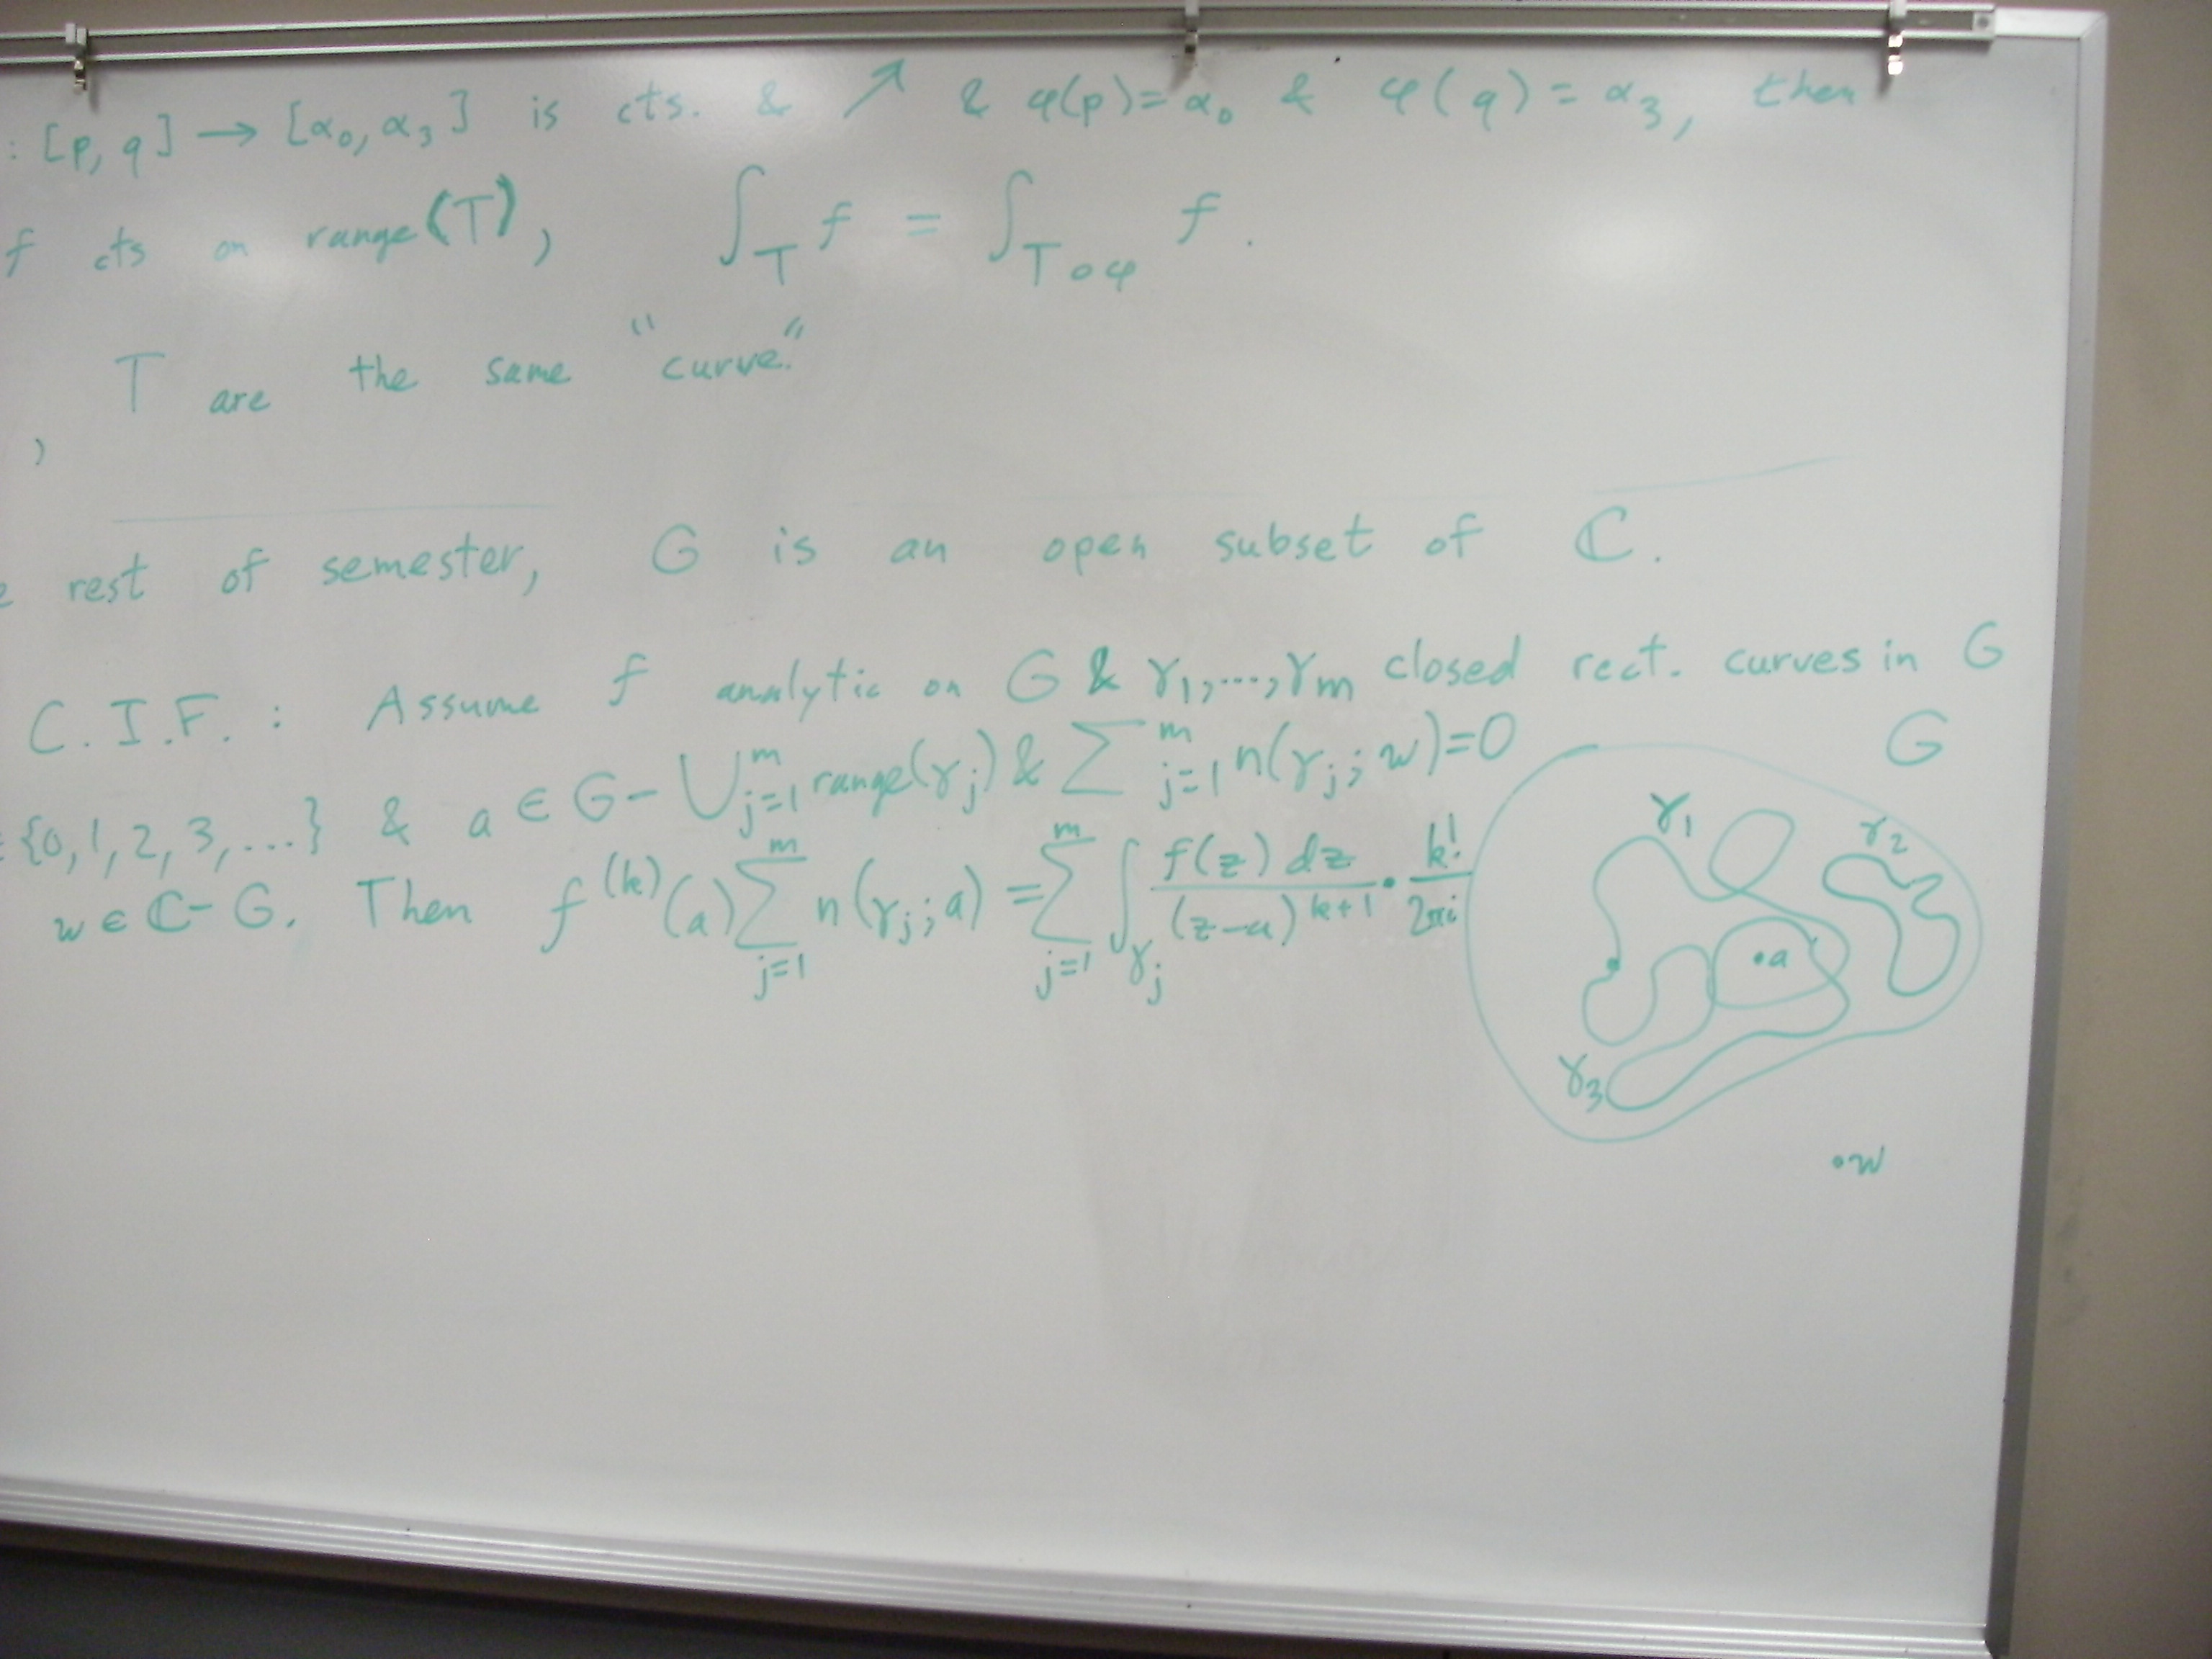 : [p, q] → [α₀, α₃] is cts. & ↗ & φ(p) = α₀ & φ(q) = α₃, then
f cts on range(T), ∫_T f = ∫_{T∘φ} f.
T are the same "curve."
)
rest of semester, G is an open subset of ℂ.
C.I.F. : Assume f analytic on G & γ₁,...,γₘ closed rect. curves in G
{0,1,2,3,...} & a ∈ G − ⋃_{j=1}^m range(γⱼ) & Σ_{j=1}^m n(γⱼ; w)=0
w ∈ ℂ − G. Then f^{(k)}(a) Σ_{j=1}^m n(γⱼ; a) = Σ_{j=1}^m ∫_{γⱼ} f(z) dz / (z−a)^{k+1} · k!/2πi
G
γ₁
γ₂
·a
γ₃
·w